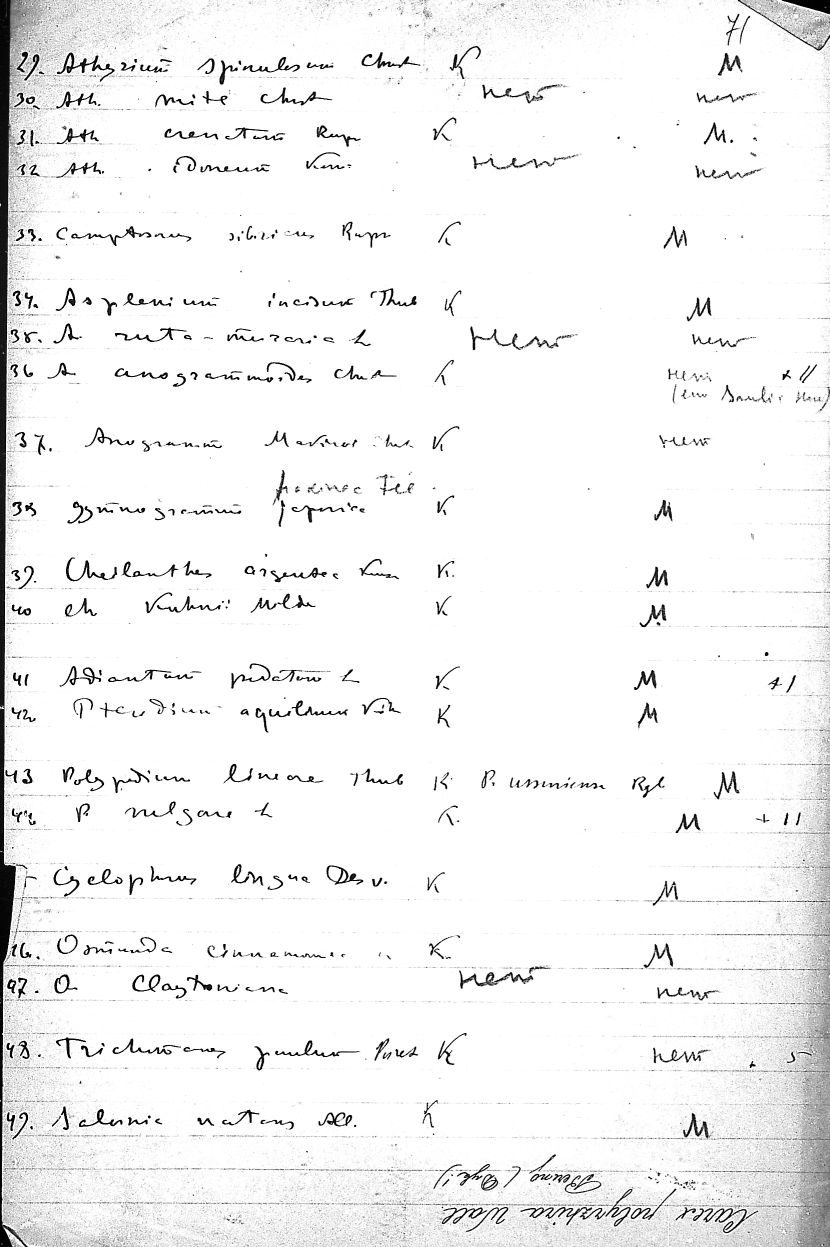 71
29. Athyrium spinulosum Christ K M
30. Ath. mite Christ нет нет
31. Ath crenatum Rupr K M.
32 Ath. idoneum Kom. нет нет
33. Camptosorus sibiricus Rupr K M
34. Asplenium incisum Thub K M
35. A ruta-muraria L нет нет
36 A anogrammoides Christ K нет + 11
37. Anogramma Makinoi K нет
Fée
38 gymnogramme japonica K M
39. Cheilanthes argentea Kunze K. M
40 Ch Kuhnii Milde K M
41 Adiantum pedatum L K M +1
42 Pteridium aquilinum Kuhn K M
43 Polypodium lineare Thub K P. ussuriense Rgl M
44 P. vulgare L K. M + 11
Cyclophorus lingua Desv. K M
46. Osmunda cinnamomea L K. M
47. O Claytoniana нет нет
48. Trichomanes K нет + 5
49. Salvinia natans All. K M
Carex polyrrhiza Wall